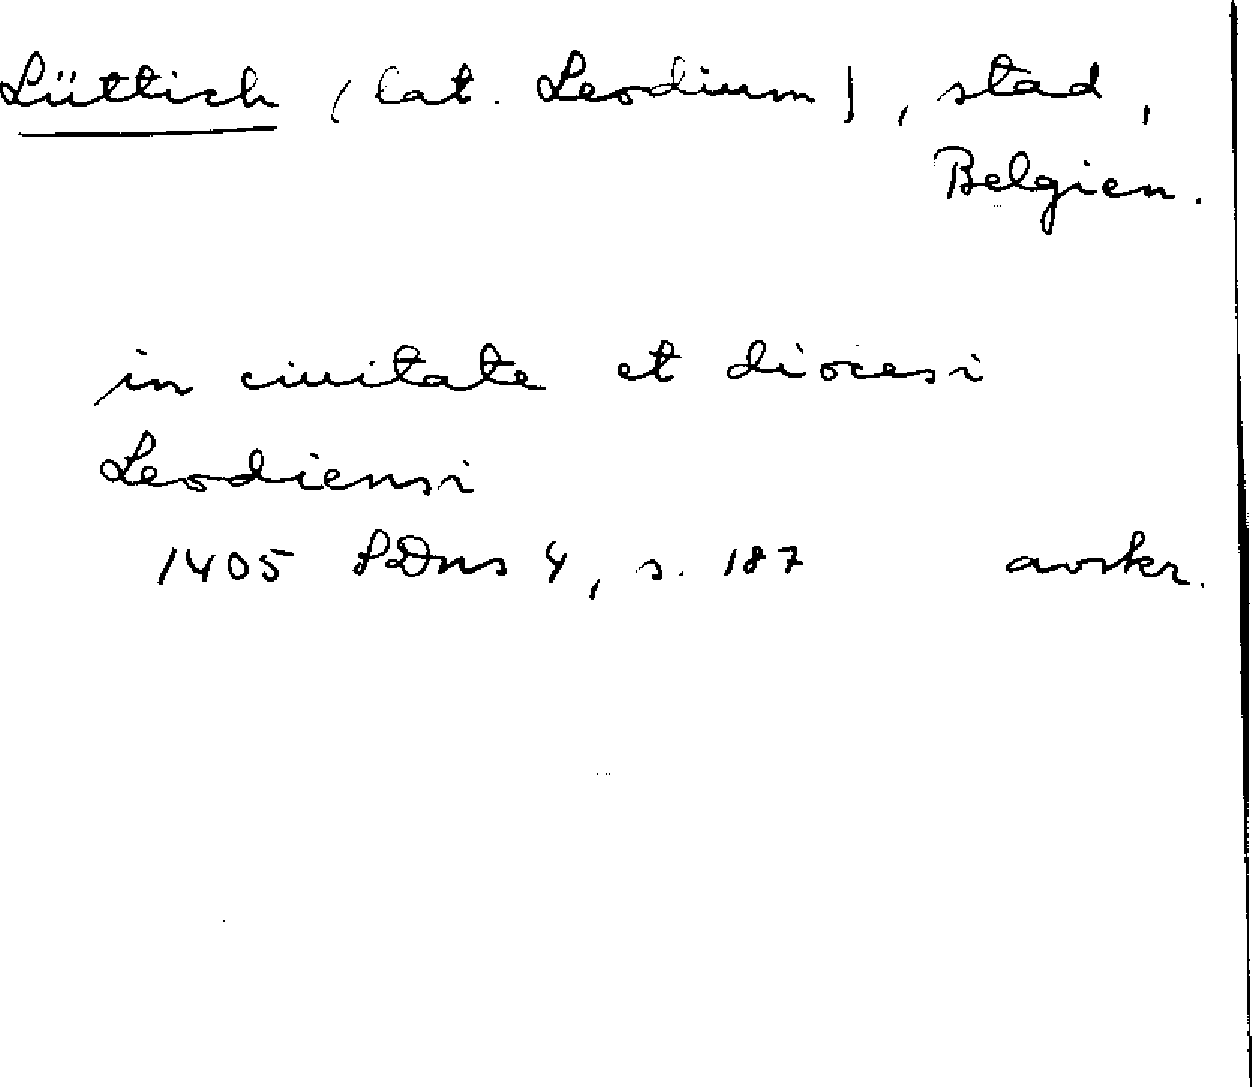 Lüttich (lat. Leodium), stad,
Belgien.
in ciuitate et diocesi
Leodiensi
1405 SDns 4, s. 187 avskr.